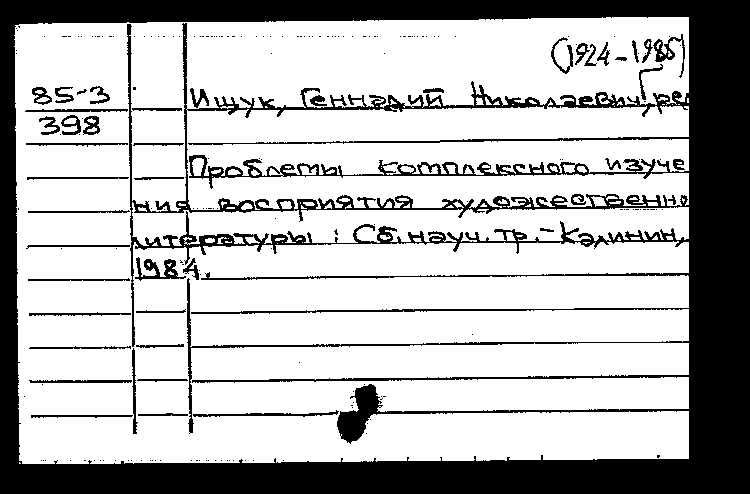 (1924-1985)
85-3 Ищук, Геннадий Николаевич, ред
398
Проблемы комплексного изуче
ния восприятия художественно
литературы : Сб. науч. тр. - Калинин,
1984.